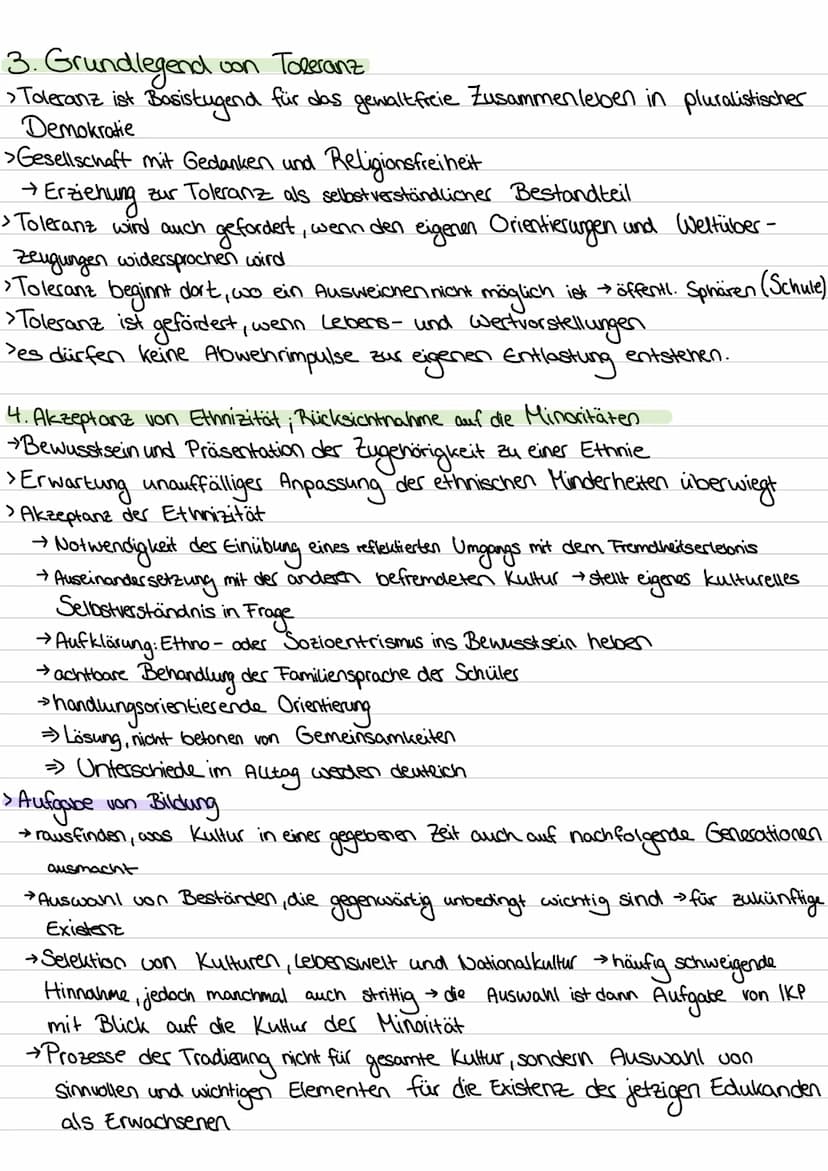 3. Grundlegend von Toleranz
> Toleranz ist Basistugend für das gewaltfreie Zusammenleben in pluralistischer
Demokratie
> Gesellschaft mit Gedanken und Religionsfreiheit
→ Erziehung zur Toleranz als selbstverständlicher Bestandteil
> Toleranz wird auch gefordert, wenn den eigenen Orientierungen und Weltüber-
zeugungen widersprochen wird
> Toleranz beginnt dort, wo ein Ausweichen nicht möglich ist → öffentl. Sphären (Schule)
> Toleranz ist gefördert, wenn Lebens- und Wertvorstellungen
> es dürfen keine Abwehrimpulse zur eigenen Entlastung entstehen.
4. Akzeptanz von Ethnizität; Rücksichtnahme auf die Minoritäten
→ Bewusstsein und Präsentation der Zugehörigkeit zu einer Ethnie
> Erwartung unauffälliges Anpassung der ethnischen Minderheiten überwiegt
> Akzeptanz der Ethnizität
→ Notwendigkeit des Einübung eines reflektierten Umgangs mit dem Fremdheitserlebnis
→ Auseinandersetzung mit der anderen befremdeten Kultur → stellt eigenes kulturelles
Selbstverständnis in Frage
→ Aufklärung: Ethno- oder Sozioentrismus ins Bewusstsein heben
→ achtbare Behandlung der Familiensprache der Schüler
→ handlungsorientierende Orientierung
⇒ Lösung, nicht betonen von Gemeinsamkeiten
⇒ Unterschiede im Alltag werden deutlich
> Aufgabe von Bildung
→ rausfinden, was Kultur in einer gegebenen Zeit auch auf nachfolgende Generationen
ausmacht
→ Auswahl von Beständen, die gegenwärtig unbedingt wichtig sind → für zukünftige
Existenz
→ Selektion von Kulturen, Lebenswelt und Nationalkultur → häufig schweigende
Hinnahme, jedoch manchmal auch strittig → die Auswahl ist dann Aufgabe von IKP
mit Blick auf die Kultur des Minorität
→ Prozesse der Tradierung nicht für gesamte Kultur, sondern Auswahl von
sinnvollen und wichtigen Elementen für die Existenz des jetzigen Edukanden
als Erwachsenen